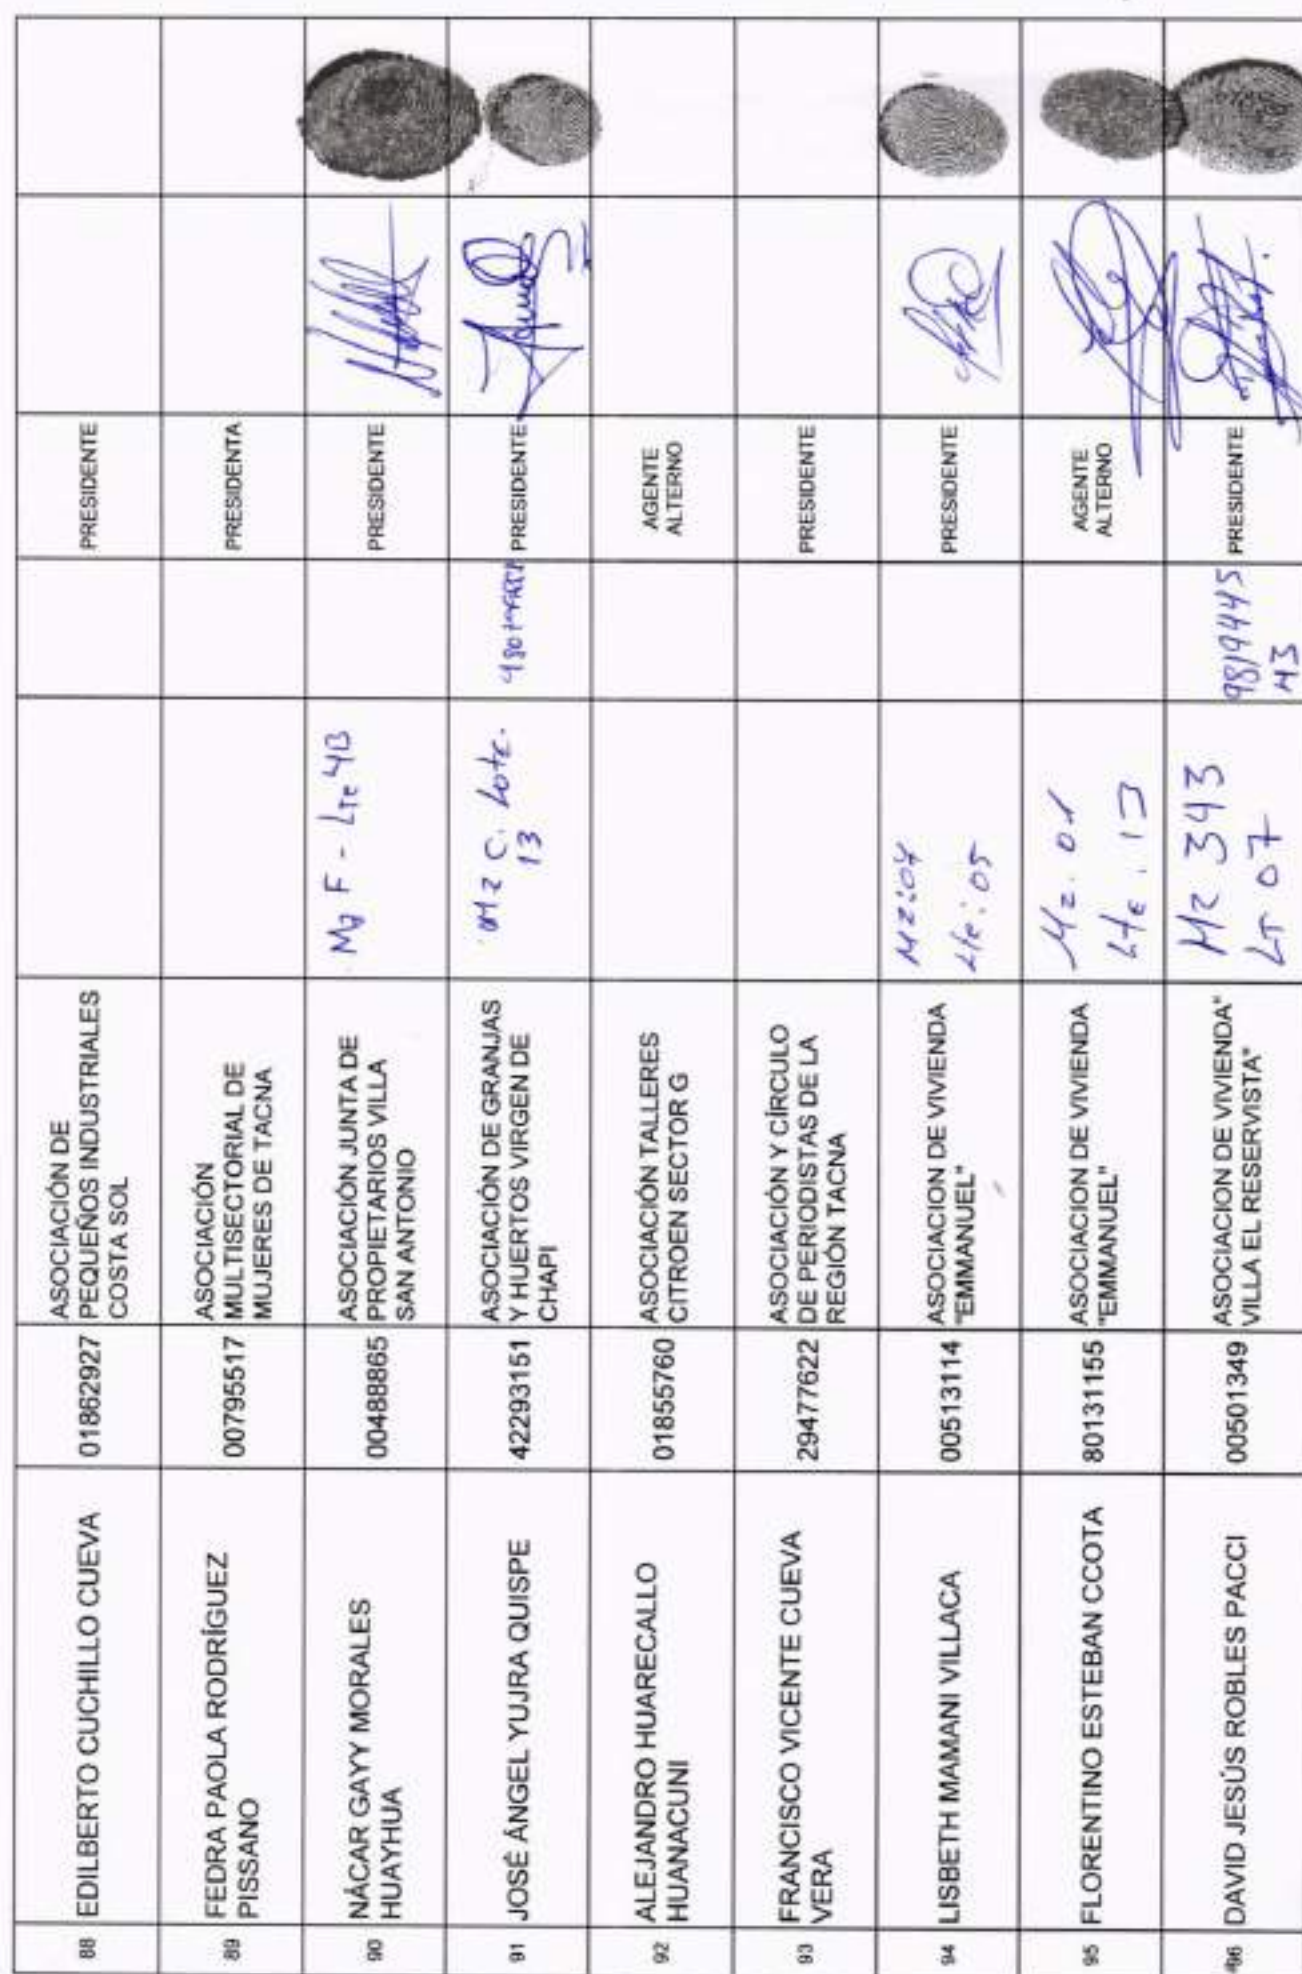 88
EDILBERTO CUCHILLO CUEVA
01862927
ASOCIACIÓN DE
PEQUEÑOS INDUSTRIALES
COSTA SOL
PRESIDENTE
89
FEDRA PAOLA RODRÍGUEZ
PISSANO
00795517
ASOCIACIÓN
MULTISECTORIAL DE
MUJERES DE TACNA
PRESIDENTA
90
NÁCAR GAYY MORALES
HUAYHUA
00488865
ASOCIACIÓN JUNTA DE
PROPIETARIOS VILLA
SAN ANTONIO
Mz F - Lte 4B
PRESIDENTE
91
JOSÉ ÁNGEL YUJRA QUISPE
42293151
ASOCIACIÓN DE GRANJAS
Y HUERTOS VIRGEN DE
CHAPI
Mz C. Lote.
13
PRESIDENTE
92
ALEJANDRO HUARECALLO
HUANACUNI
01855760
ASOCIACIÓN TALLERES
CITROEN SECTOR G
AGENTE
ALTERNO
93
FRANCISCO VICENTE CUEVA
VERA
29477622
ASOCIACIÓN Y CÍRCULO
DE PERIODISTAS DE LA
REGIÓN TACNA
PRESIDENTE
94
LISBETH MAMANI VILLACA
00513114
ASOCIACION DE VIVIENDA
"EMMANUEL"
Mz:04
Lte:05
PRESIDENTE
95
FLORENTINO ESTEBAN CCOTA
80131155
ASOCIACION DE VIVIENDA
"EMMANUEL"
Mz. 01
Lte. 13
AGENTE
ALTERNO
96
DAVID JESÚS ROBLES PACCI
00501349
ASOCIACION DE VIVIENDA"
VILLA EL RESERVISTA"
Mz 343
LT 07
9819445
43
PRESIDENTE